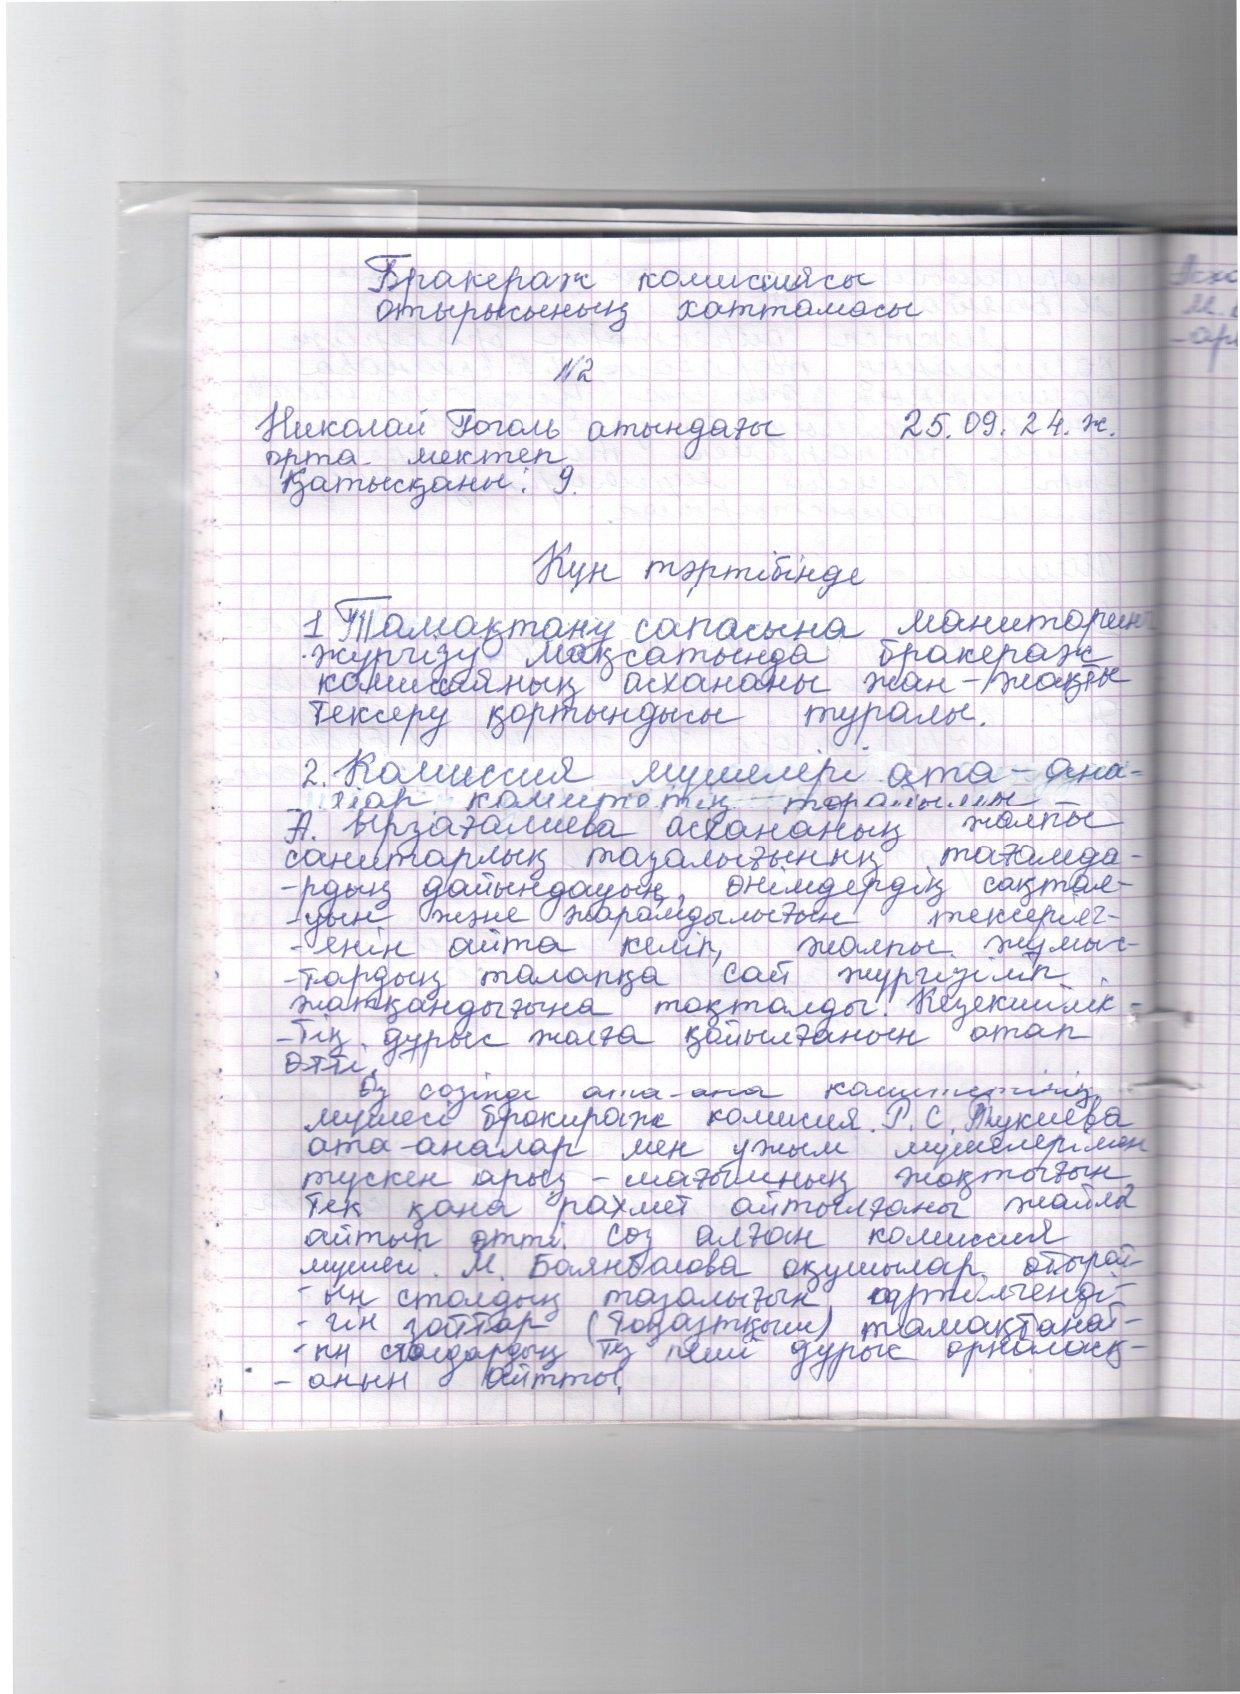 Бракераж комиссиясы
отырысының хаттамасы
№2
Николай Гоголь атындағы 25.09.24.ж.
орта мектеп
Қатысқаны: 9.
Күн тәртібінде
1 Тамақтану сапасына маниторинг
жүргізу мақсатында бракераж
комиссияның асхананы жан-жақты
тексеру қортындысы туралы.
2. Комиссия мүшелері ата-ана-
лар комитетің төрайымы
А. Ырзағалиева асхананың жалпы
санитарлық тазалығының тағамда-
-рдың дайындауын, өнімдердің сақтал-
-уын және жарамдылығын тексеріл-
-енін айта келіп, жалпы жұмыс-
-тардың талапқа сай жүргізіліп
жатқандығына тоқталды. Кезекшілік-
-тің дұрыс жолға қойылғанын атап
өтті.
Өз сөзінде ата-ана комитетінің
мүшесі бракираж комисия. Р.С. Тукиева
ата-аналар мен ұжым мүшелерімен
түскен арыз-мағымның жоқтығын
тек қана рахмет айтылғаны жайлы
айтып өтті. Сөз алған комиссия
мүшесі. М. Баянбаева оқушылар отырат-
-ын столдың тазалығын сүртілгенді-
-гін заттар (тоңазтқыш) тамақтанат-
-ын столдардың дұрыс орналасқ-
-анын айтты.